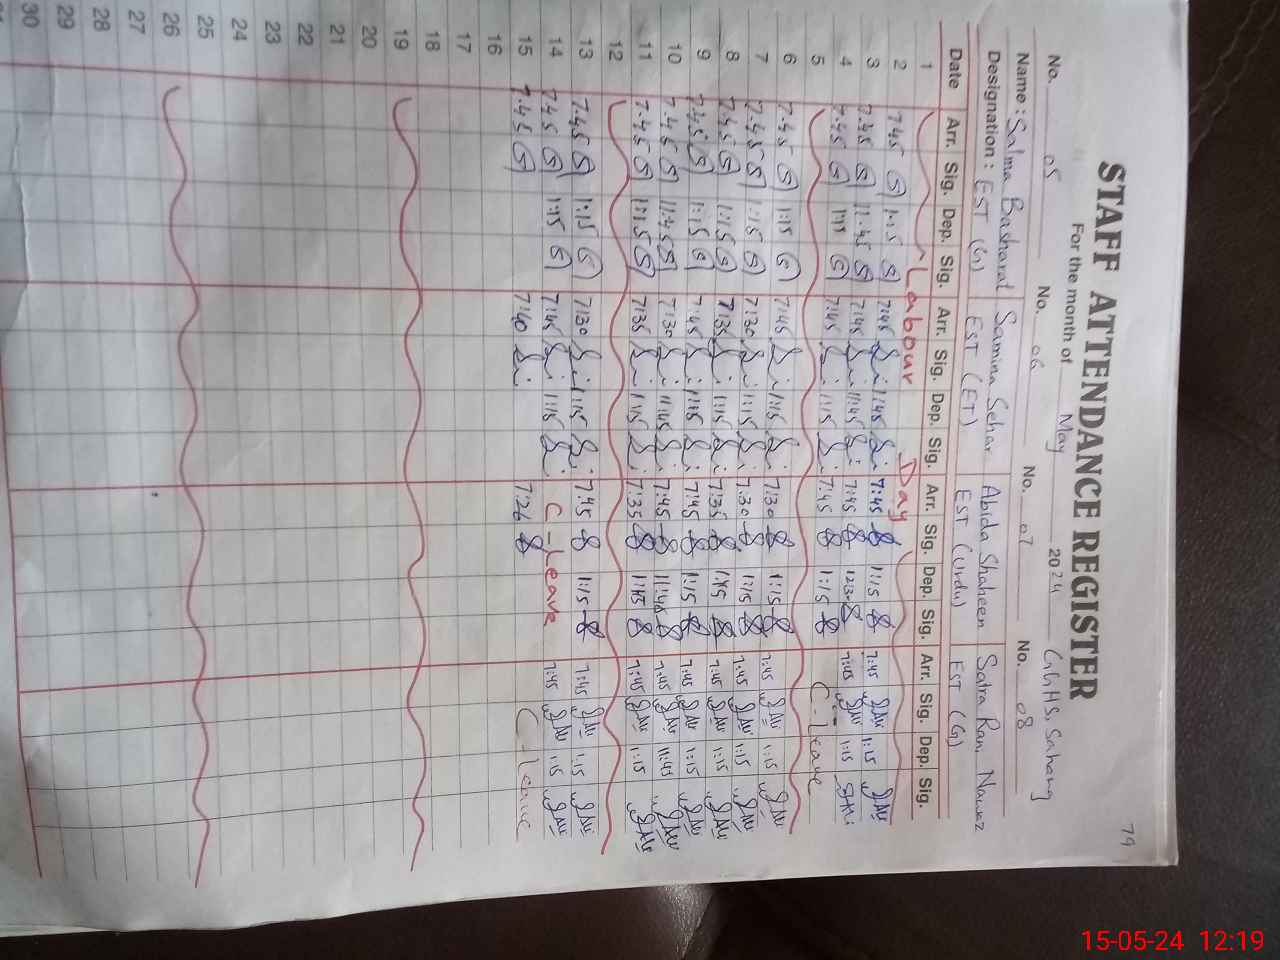 79
STAFF ATTENDANCE REGISTER
For the month of May 2024 GGHS, Sahang
No. 05 No. 06 No. 07 No. 08
Name: Salma Basharat Samina Sehar Abida Shaheen Saira Rani Nawaz
Designation: EST (G) EST (ET) EST (Urdu) EST (G)
Date Arr. Sig. Dep. Sig. Arr. Sig. Dep. Sig. Arr. Sig. Dep. Sig. Arr. Sig. Dep. Sig.
1 Labour Day
2 7.45 S 1:15 S 7:45 1:45 7:45 1:15 7:45 1:15
3 7.45 S 11.45 S 7:45 11:45 7:45 7:45 1:15
4 7.45 S 1:15 S 7:45 1:15 7:45 1:15 C-leave
5
6 7.45 S 1:15 S 7:45 1:15 7:30 1:15 7:45 1:15
7 7.45 S 1:15 S 7:30 1:15 7.30 1:15 7:45 1:15
8 7.45 S 1:15 S 7:35 1:15 7:35 1:15 7:45 1:15
9 7.45 S 1:15 S 7:45 1:15 7:45 1:15 7:45 1:15
10 7.45 S 11.45 S 7:30 11:45 7:45 11:45 7:45 11:45
11 7.45 S 1:15 S 7:35 1:15 7:35 1:15 7:45 1:15
12
13 7.45 S 1:15 S 7:30 1:15 7:45 1:15 7:45 1:15
14 7.45 S 1:15 S 7:45 1:15 C-Leave 7:45 1:15
15 7.45 S 7:40 7:26 C-leave
16
17
18
19
20
21
22
23
24
25
26
27
28
29
30
15-05-24 12:19